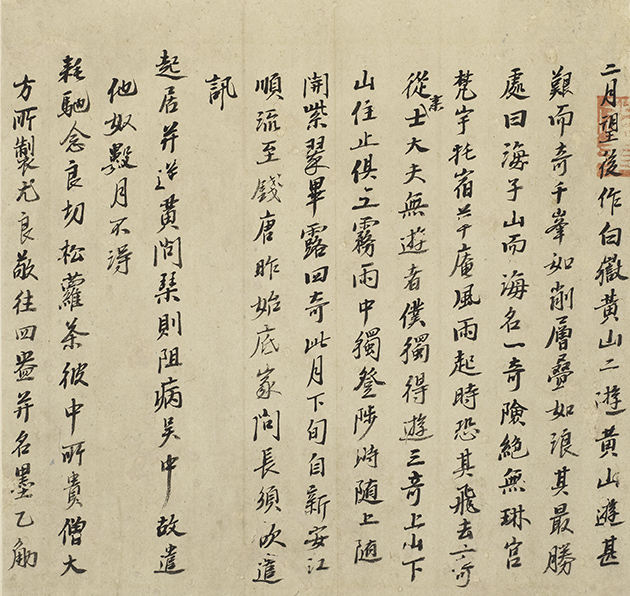 二月望後作白嶽黃山二遊黃山遊甚
艱而奇千峯如削層疊如浪其最勝
處曰海子山而海名一奇險絕無琳宮
梵宇托宿庵風雨起時恐其飛去二奇
從來士大夫無遊者僕獨得遊三奇上山下
山住止俱在霧雨中獨登陟時隨上隨
開紫翠畢露四奇此月下旬自新安江
順流至錢唐昨始底家問長須欲遣
訊
起居并送黃問琴則阻病吳中故遣
他奴數月不得
耗馳念良切松蘿茶彼中所貴僧大
方所製尤良敬往四并名墨乙觔